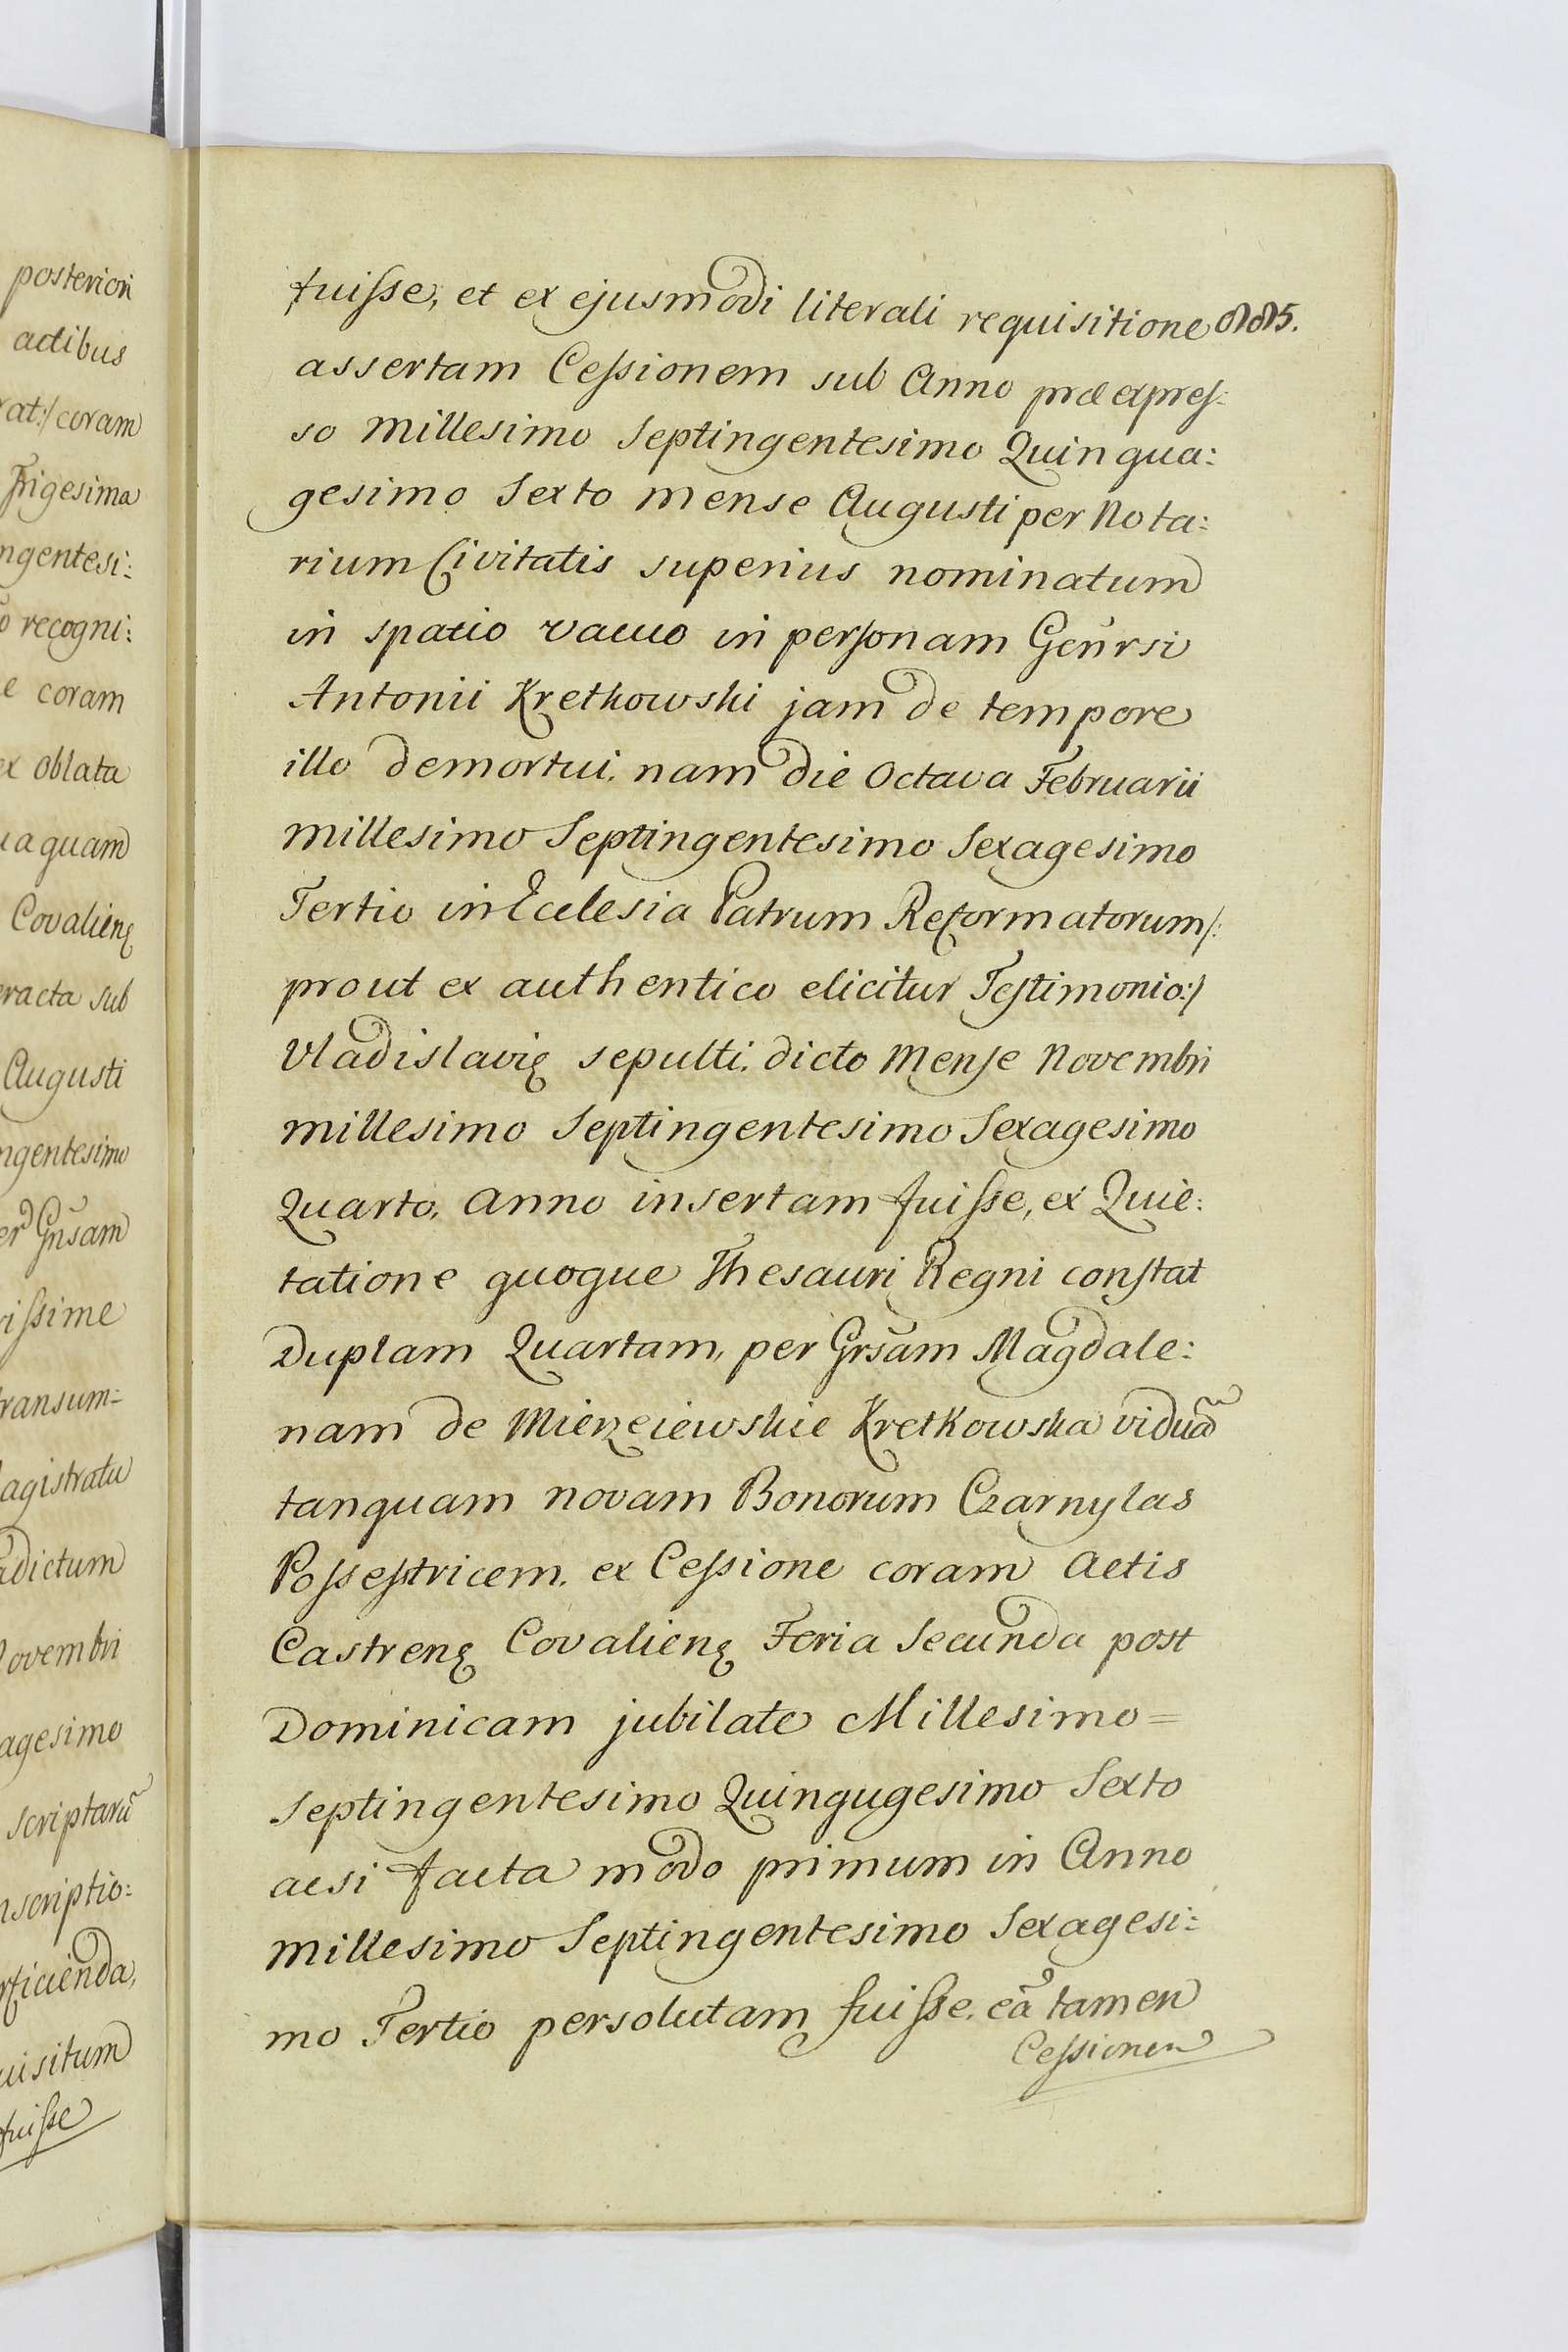 posteriori
actibus
rat:/ coram
Trigesima
ngentesi:
recogni:
e coram
ex oblata
uaquam
Covalienȩ
eracta sub
Augusti
ngentesimo
Gn̄sam
rissime
transum=
agistratu
adictum
ovembri
agesimo
scriptarū
nscriptio:
rficienda,
uisitum
fuisse
fuisse, et ex ejusmodi literali requisitione 885.
assertam Cessionem sub Anno præexpres:
so Millesimo Septingentesimo Quinqua:
gesimo Sexto mense Augusti per Nota:
rium Civitatis superius nominatum
in spatio vacuo in personam Genr̄si
Antonii Kretkowski jam de tempore
illo demortui. nam die Octava Februarii
Millesimo Septingentesimo Sexagesimo
Tertio in Ecclesia Patrum Reformatorum /:
prout ex authentico elicitur Testimonio:/
Vladislaviȩ sepulti. dicto Mense Novembri
Millesimo Septingentesimo Sexagesimo
Quarto, Anno insertam fuisse, ex Quie:
tatione quoque Thesauri Regni constat
Duplam Quartam, per Grs̄am Magdale:
nam de Mierzeiewskie Kretkowska viduā
tanquam novam Bonorum Czarnylas
Possestricem. ex Cessione coram Actis
Castrenȩ Covalienȩ Feria Secunda post
Dominicam jubilate Millesimo=
Septingentesimo Quingugesimo Sexto
acsi facta modo primum in Anno
Millesimo Septingentesimo Sexagesi:
mo Tertio persolutam fuisse. eā tamen
Cessionem